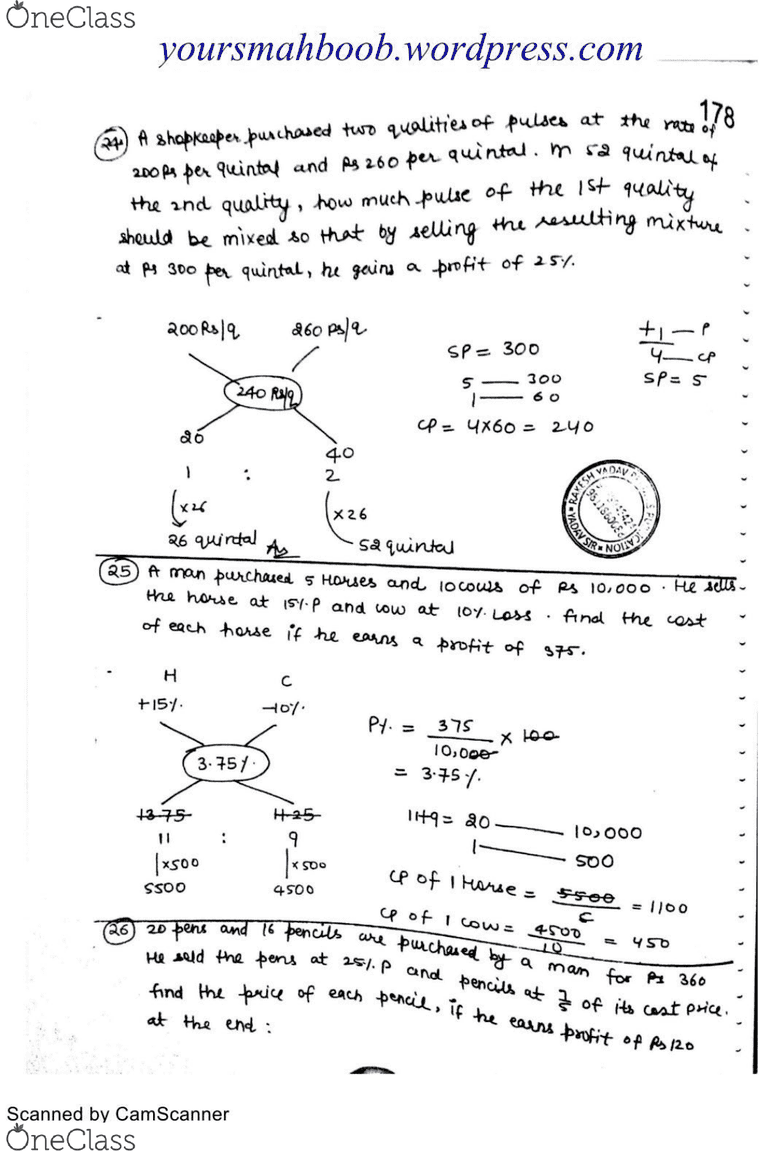 OneClass
yoursmahboob.wordpress.com
178
24 A shopkeeper purchased two qualities of pulses at the rate of
200Rs per quintal and Rs 260 per quintal. In 52 quintal of
the 2nd quality, how much pulse of the 1st quality
should be mixed so that by selling the resulting mixture
at Rs 300 per quintal, he gains a profit of 25%.
200 Rs/q 260 Rs/q
SP = 300
+1 — P
4 — CP
SP = 5
240 Rs/q
5 — 300
1 — 60
CP = 4×60 = 240
20 40
1 : 2
×26 ×26
26 quintal As 52 quintal
RAKESH YADAV
YADAV SIR
25 A man purchased 5 Horses and 10 cows of Rs 10,000. He sells
the horse at 15%.P and cow at 10%. Loss. find the cost
of each horse if he earns a profit of 375.
H C
+15%. -10%.
P%. = 375/10,000 × 100
= 3.75%.
3.75%.
13.75 11.25
11 : 9
11+9 = 20 — 10,000
1 — 500
×500 ×500
5500 4500
CP of 1 Horse = 5500/5 = 1100
CP of 1 cow = 4500/10 = 450
26 20 pens and 16 pencils are purchased by a man for Rs 360
He sold the pens at 25%.P and pencils at 7/5 of its cost price.
find the price of each pencil, if he earns profit of Rs 120
at the end:
Scanned by CamScanner
OneClass